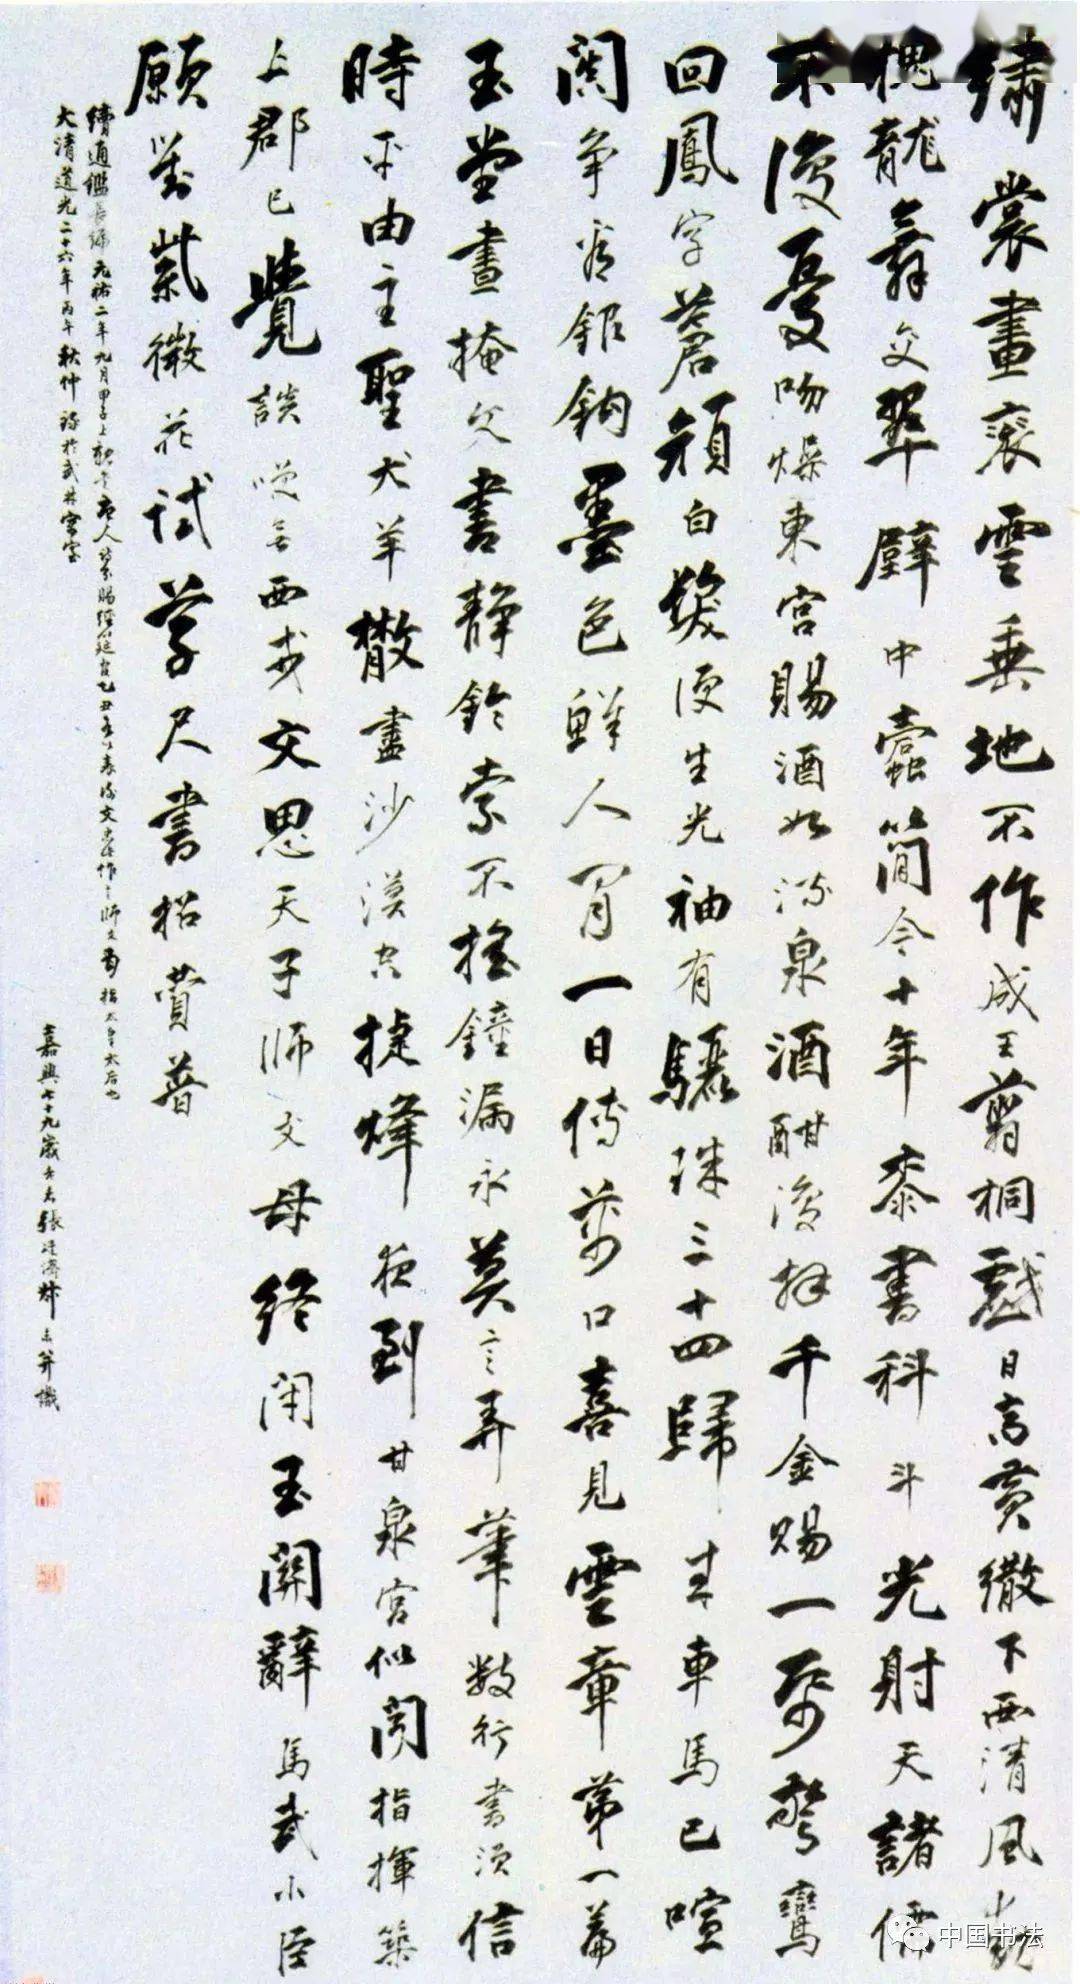 繡裳畫袞雲垂地不作成王翦桐戲日高黃繖下西清風動
槐龍舞交翠壁中蠹簡今十年桼書科斗光射天諸儒
不復憂吻燥東宮賜酒如流泉酒酣復拜千金賜一帋驚鸞
回鳳字蒼顏白髮便生光袖有驪珠三十四歸來車馬已喧
闐爭看銀鉤墨色鮮人間一日傳萬口喜見雲章第一篇
玉堂晝掩文書靜鈴索不搖鐘漏永莫言弄筆數行書須信
時平由主聖犬羊散盡沙漠空捷烽夜到甘泉宮似聞指揮築
上郡已覺談笑無西戎文思天子師文母終閉玉關辭馬武小臣
願對紫微花試草尺書招贊普
續通鑑長編元祐二年九月甲子上親書唐人詩賜經筵官乙丑各以表謝文忠作師文母指太皇太后也
大清道光二十六年丙午秋仲錄於武林寓室
嘉興七十九歲老者張廷濟叔未并識
中国书法